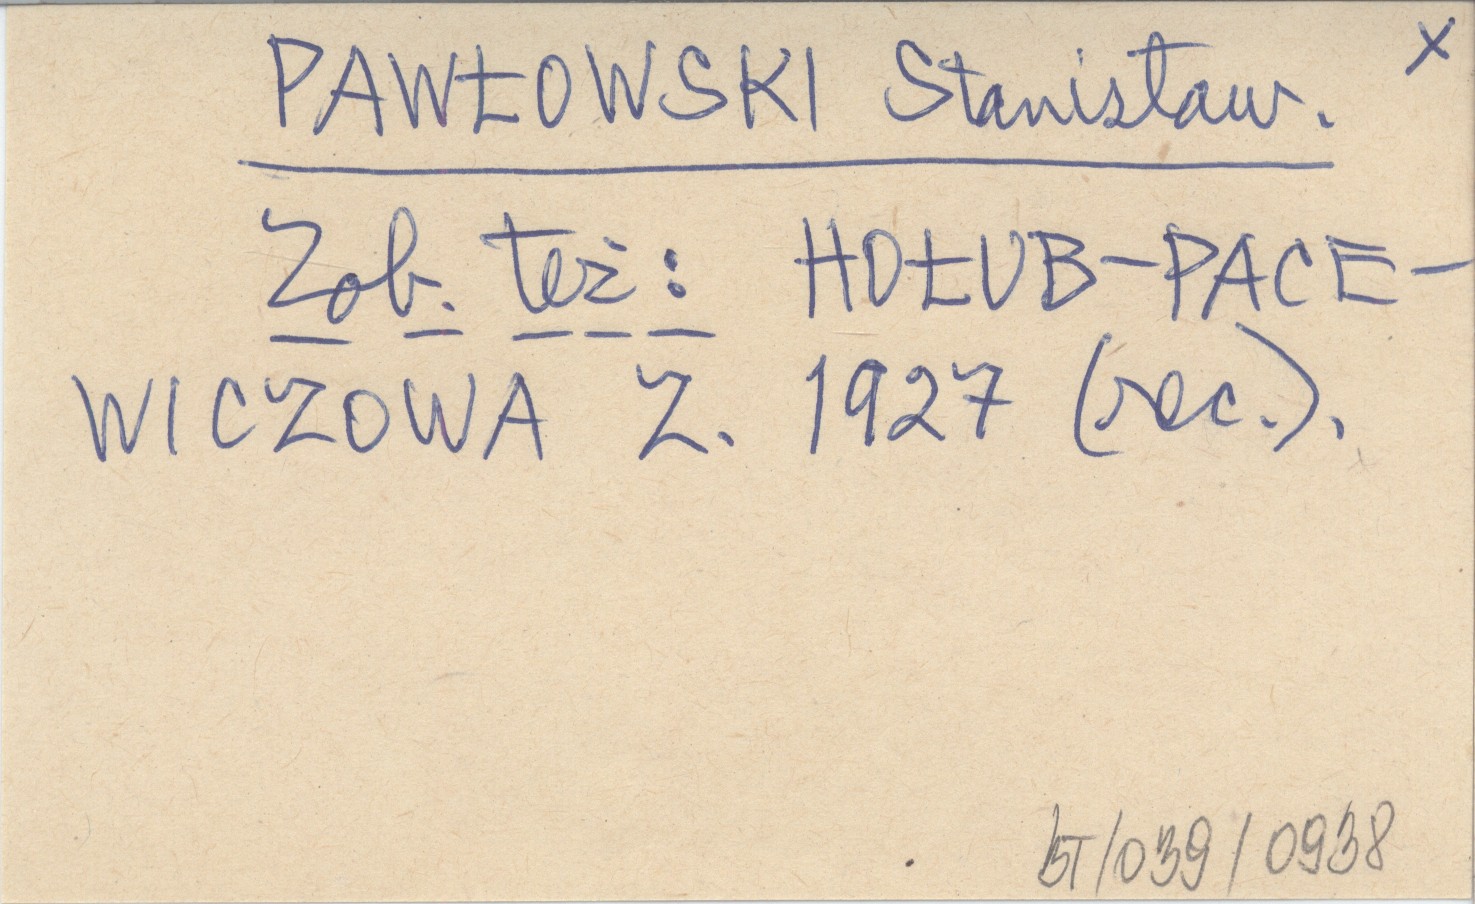 PAWŁOWSKI Stanisław. x
Zob. też: HOŁUB-PACE-
WICZOWA Z. 1927 (rec.).
BT/039/0938